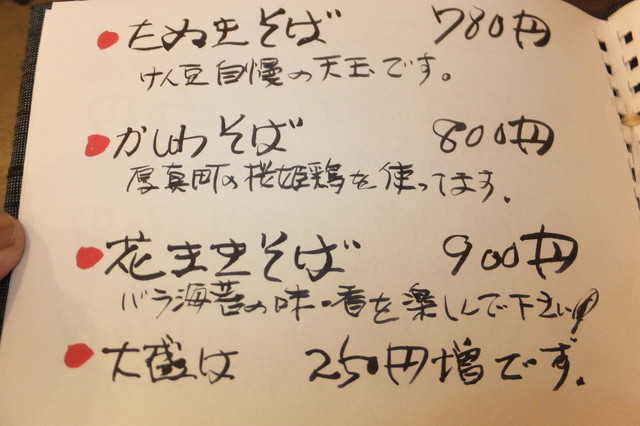 たぬきそば 780円
けん豆自慢の天玉です。
かしわそば 800円
厚真町の桜姫鶏を使ってます.
花まきそば 900円
バラ海苔の味・香を楽しんで下さい!
大盛は 250円増です.